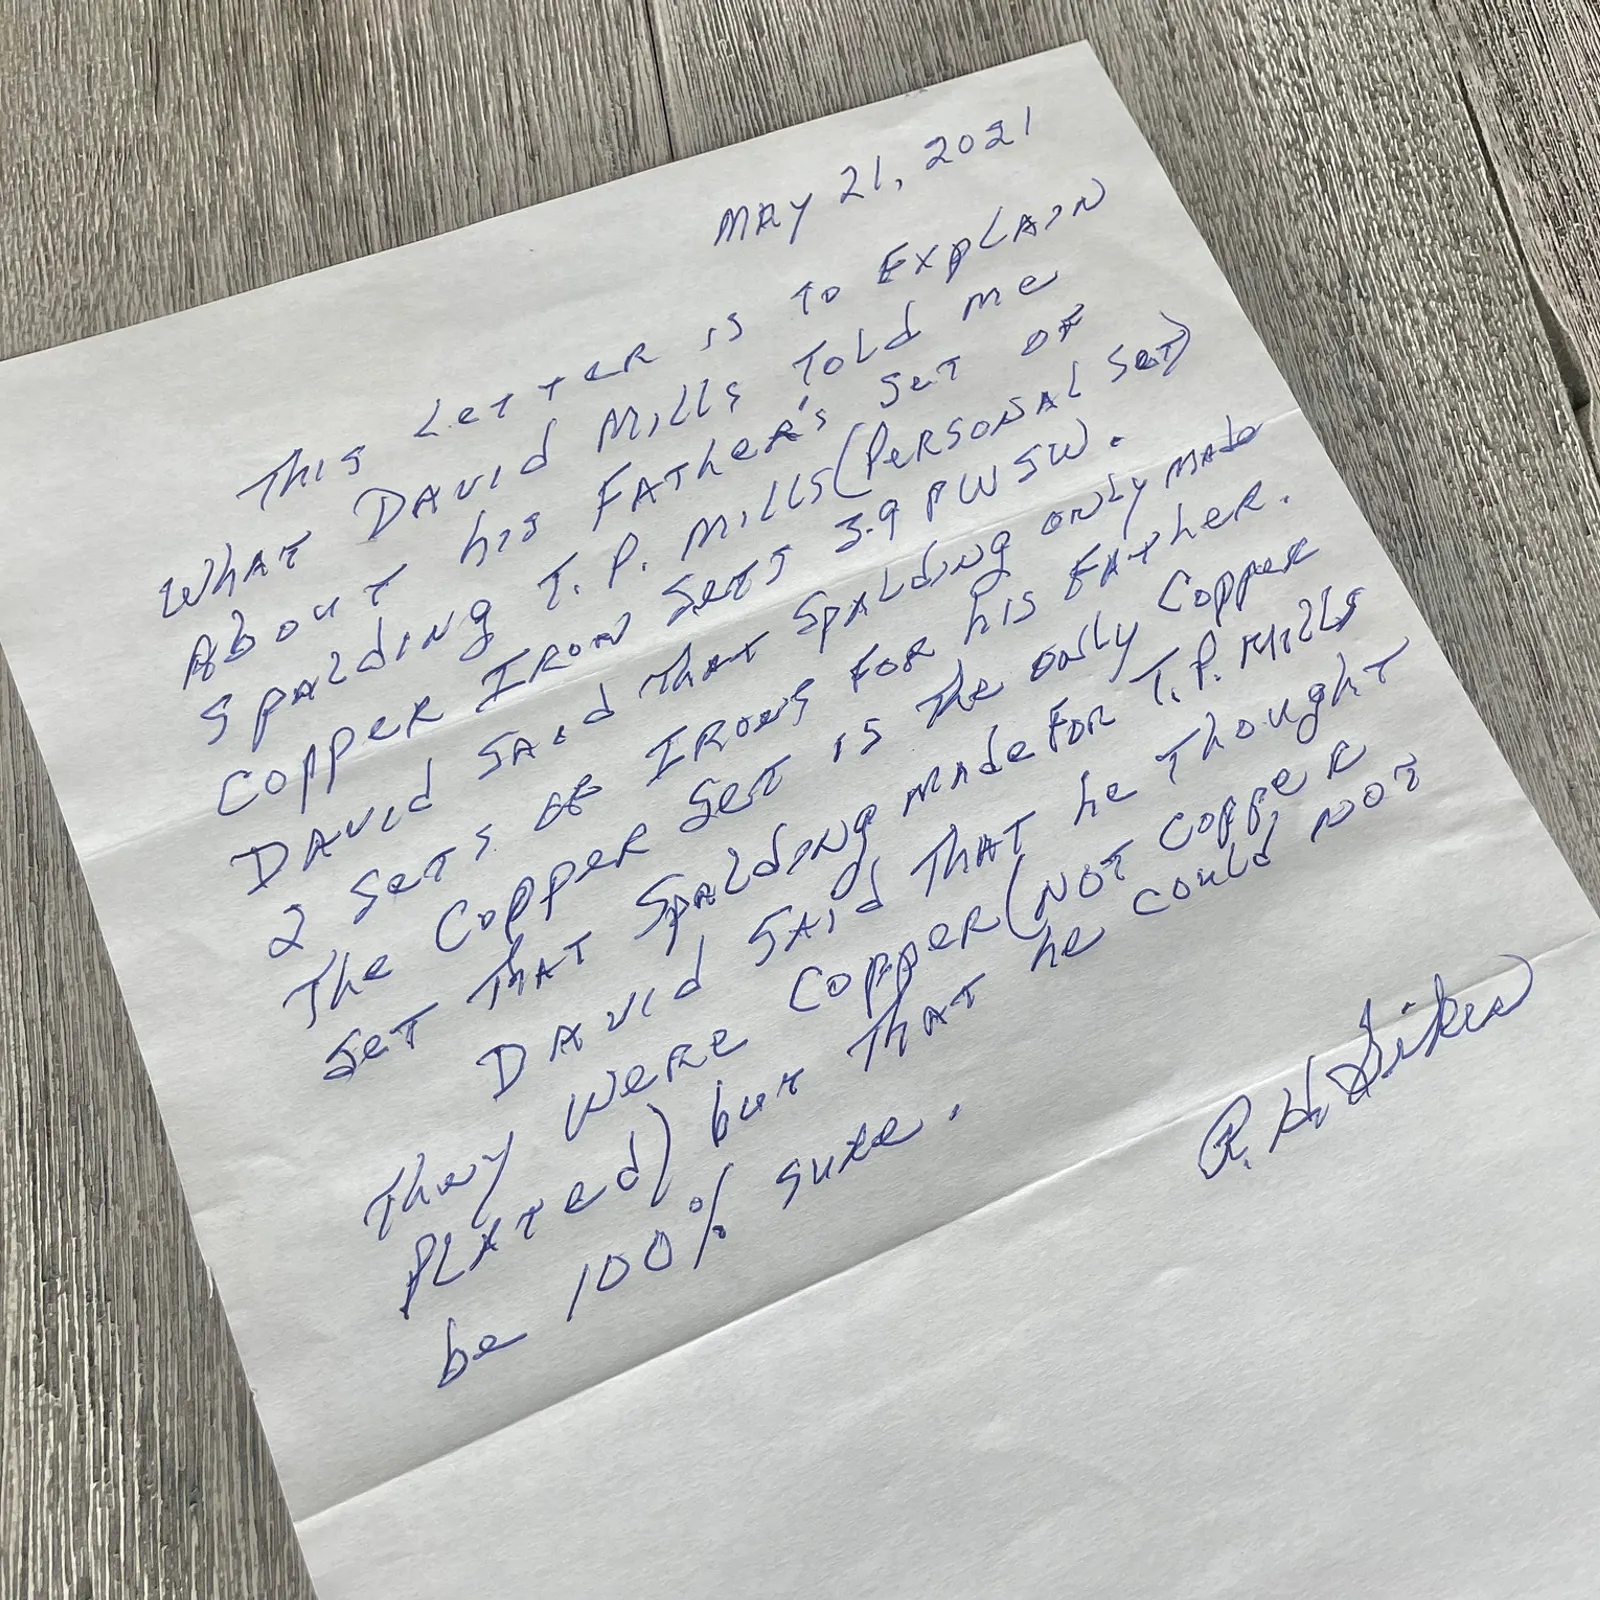 May 21, 2021
This Letter is to Explain
What David Mills Told me
About his Father's Set of
Spalding T. P. Mills (Personal Set)
Copper Iron Sets 3-9 PW SW.
David Said That Spalding only made
2 Sets of Irons for his Father.
The Copper Set is the only Copper
Set That Spalding made For T. P. Mills
David Said That he Thought
They were Copper (Not Copper
Plated) but That he could not
be 100% sure.
R. H. Sikes